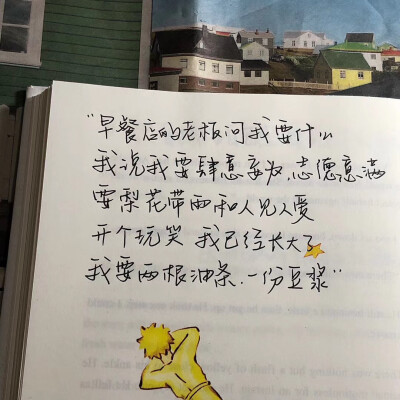 "早餐店的老板问我要什么
我说我要肆意妄为,志德意满
要梨花带雨和人见人爱
开个玩笑 我已经长大了
我要两根油条.一份豆浆"